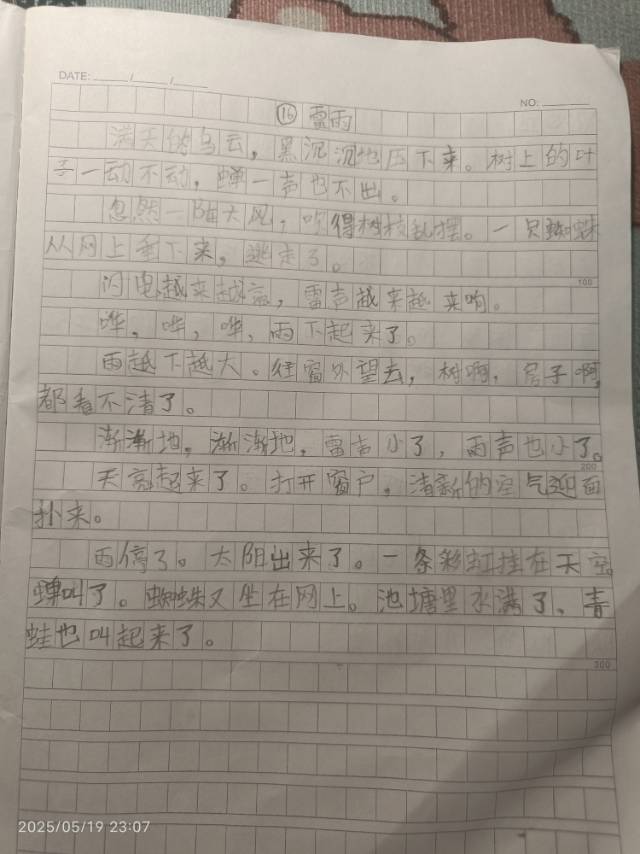 DATE: ____/____/____
NO. ______
⑯ 雷雨
满天的乌云，黑沉沉地压下来。树上的叶
子一动不动，蝉一声也不出。
忽然一阵大风，吹得树枝乱摆。一只蜘蛛
从网上垂下来，逃走了。
100
闪电越来越亮，雷声越来越来响。
哗，哗，哗，雨下起来了。
雨越下越大。往窗外望去，树啊，房子啊，
都看不清了。
渐渐地，渐渐地，雷声小了，雨声也小了。
200
天亮起来了。打开窗户，清新的空气迎面
扑来。
雨停了。太阳出来了。一条彩虹挂在天空。
蝉叫了。蜘蛛又坐在网上。池塘里水满了、青
蛙也叫起来了。
300
2025/05/19 23:07